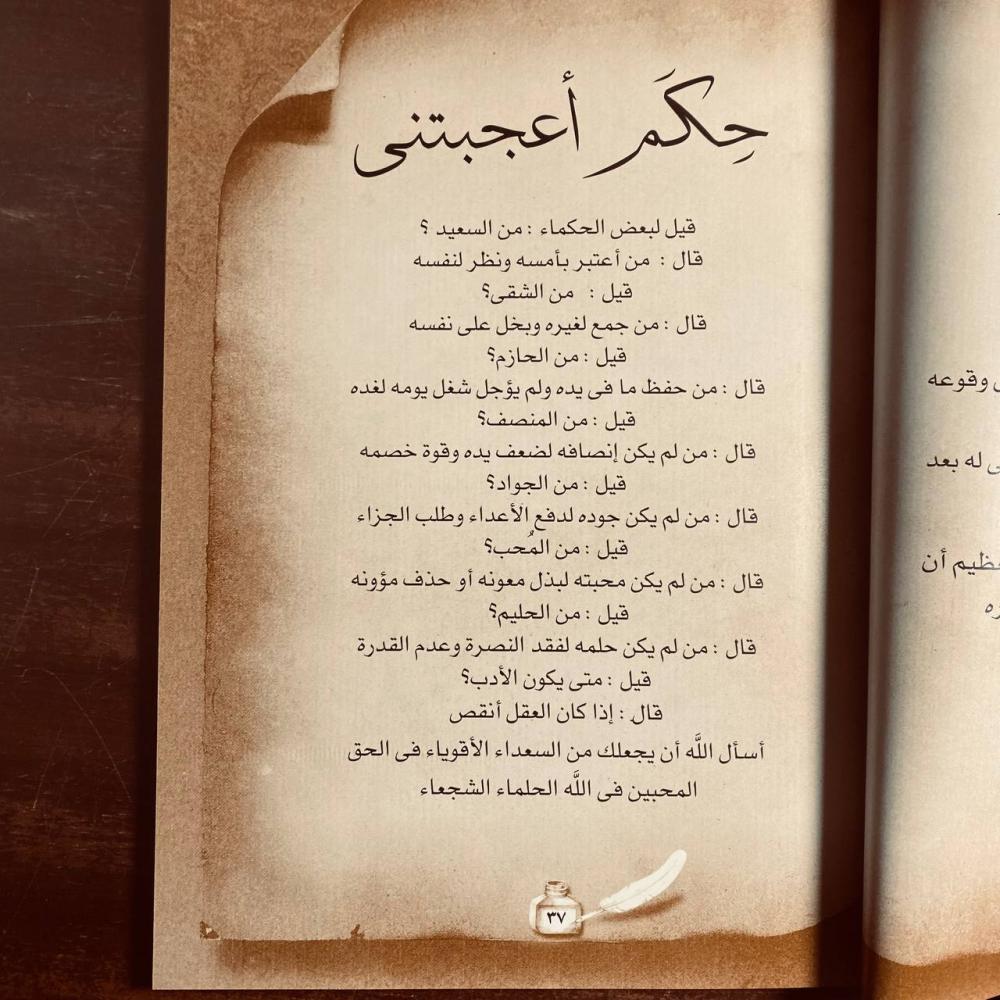 حِكَم أعجبتنى
قيل لبعض الحكماء : من السعيد ؟
قال : من أعتبر بأمسه ونظر لنفسه
قيل : من الشقى؟
قال : من جمع لغيره وبخل على نفسه
قيل : من الحازم؟
قال : من حفظ ما فى يده ولم يؤجل شغل يومه لغده
قيل : من المنصف؟
قال : من لم يكن إنصافه لضعف يده وقوة خصمه
قيل : من الجواد؟
قال : من لم يكن جوده لدفع الأعداء وطلب الجزاء
قيل : من المُحب؟
قال : من لم يكن محبته لبذل معونه أو حذف مؤونه
قيل : من الحليم؟
قال : من لم يكن حلمه لفقد النصرة وعدم القدرة
قيل : متى يكون الأدب؟
قال : إذا كان العقل أنقص
أسأل اللَّه أن يجعلك من السعداء الأقوياء فى الحق
المحبين فى اللَّه الحلماء الشجعاء
٣٧
وقوعه
له بعد
أن